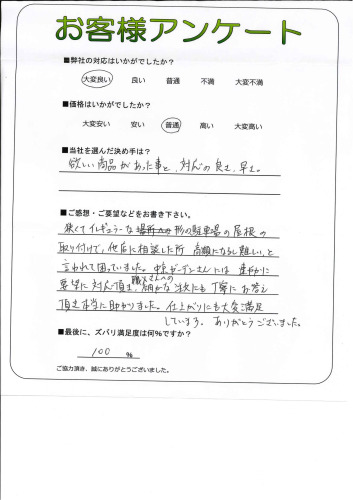 お客様アンケート
■弊社の対応はいかがでしたか?
大変良い 良い 普通 不満 大変不満
■価格はいかがでしたか?
大変安い 安い 普通 高い 大変高い
■当社を選んだ決め手は?
欲しい商品があった事と、対応の良さ、早さ。
■ご感想・ご要望などをお書き下さい。
狭くてイレギュラーな 形の駐車場の屋根の
取り付けで、他店に相談した所 高額になるし難しい、と
言われて困っていました。 ガーデンさんには 速やかに
職人さんへの
要望に対応頂き、細かな注文にも丁寧にお答え
頂き本当に助かりました。仕上がりにも大変満足
しています。ありがとうございました。
■最後に、ズバリ満足度は何%ですか?
100 %
ご協力頂き、誠にありがとうございました。